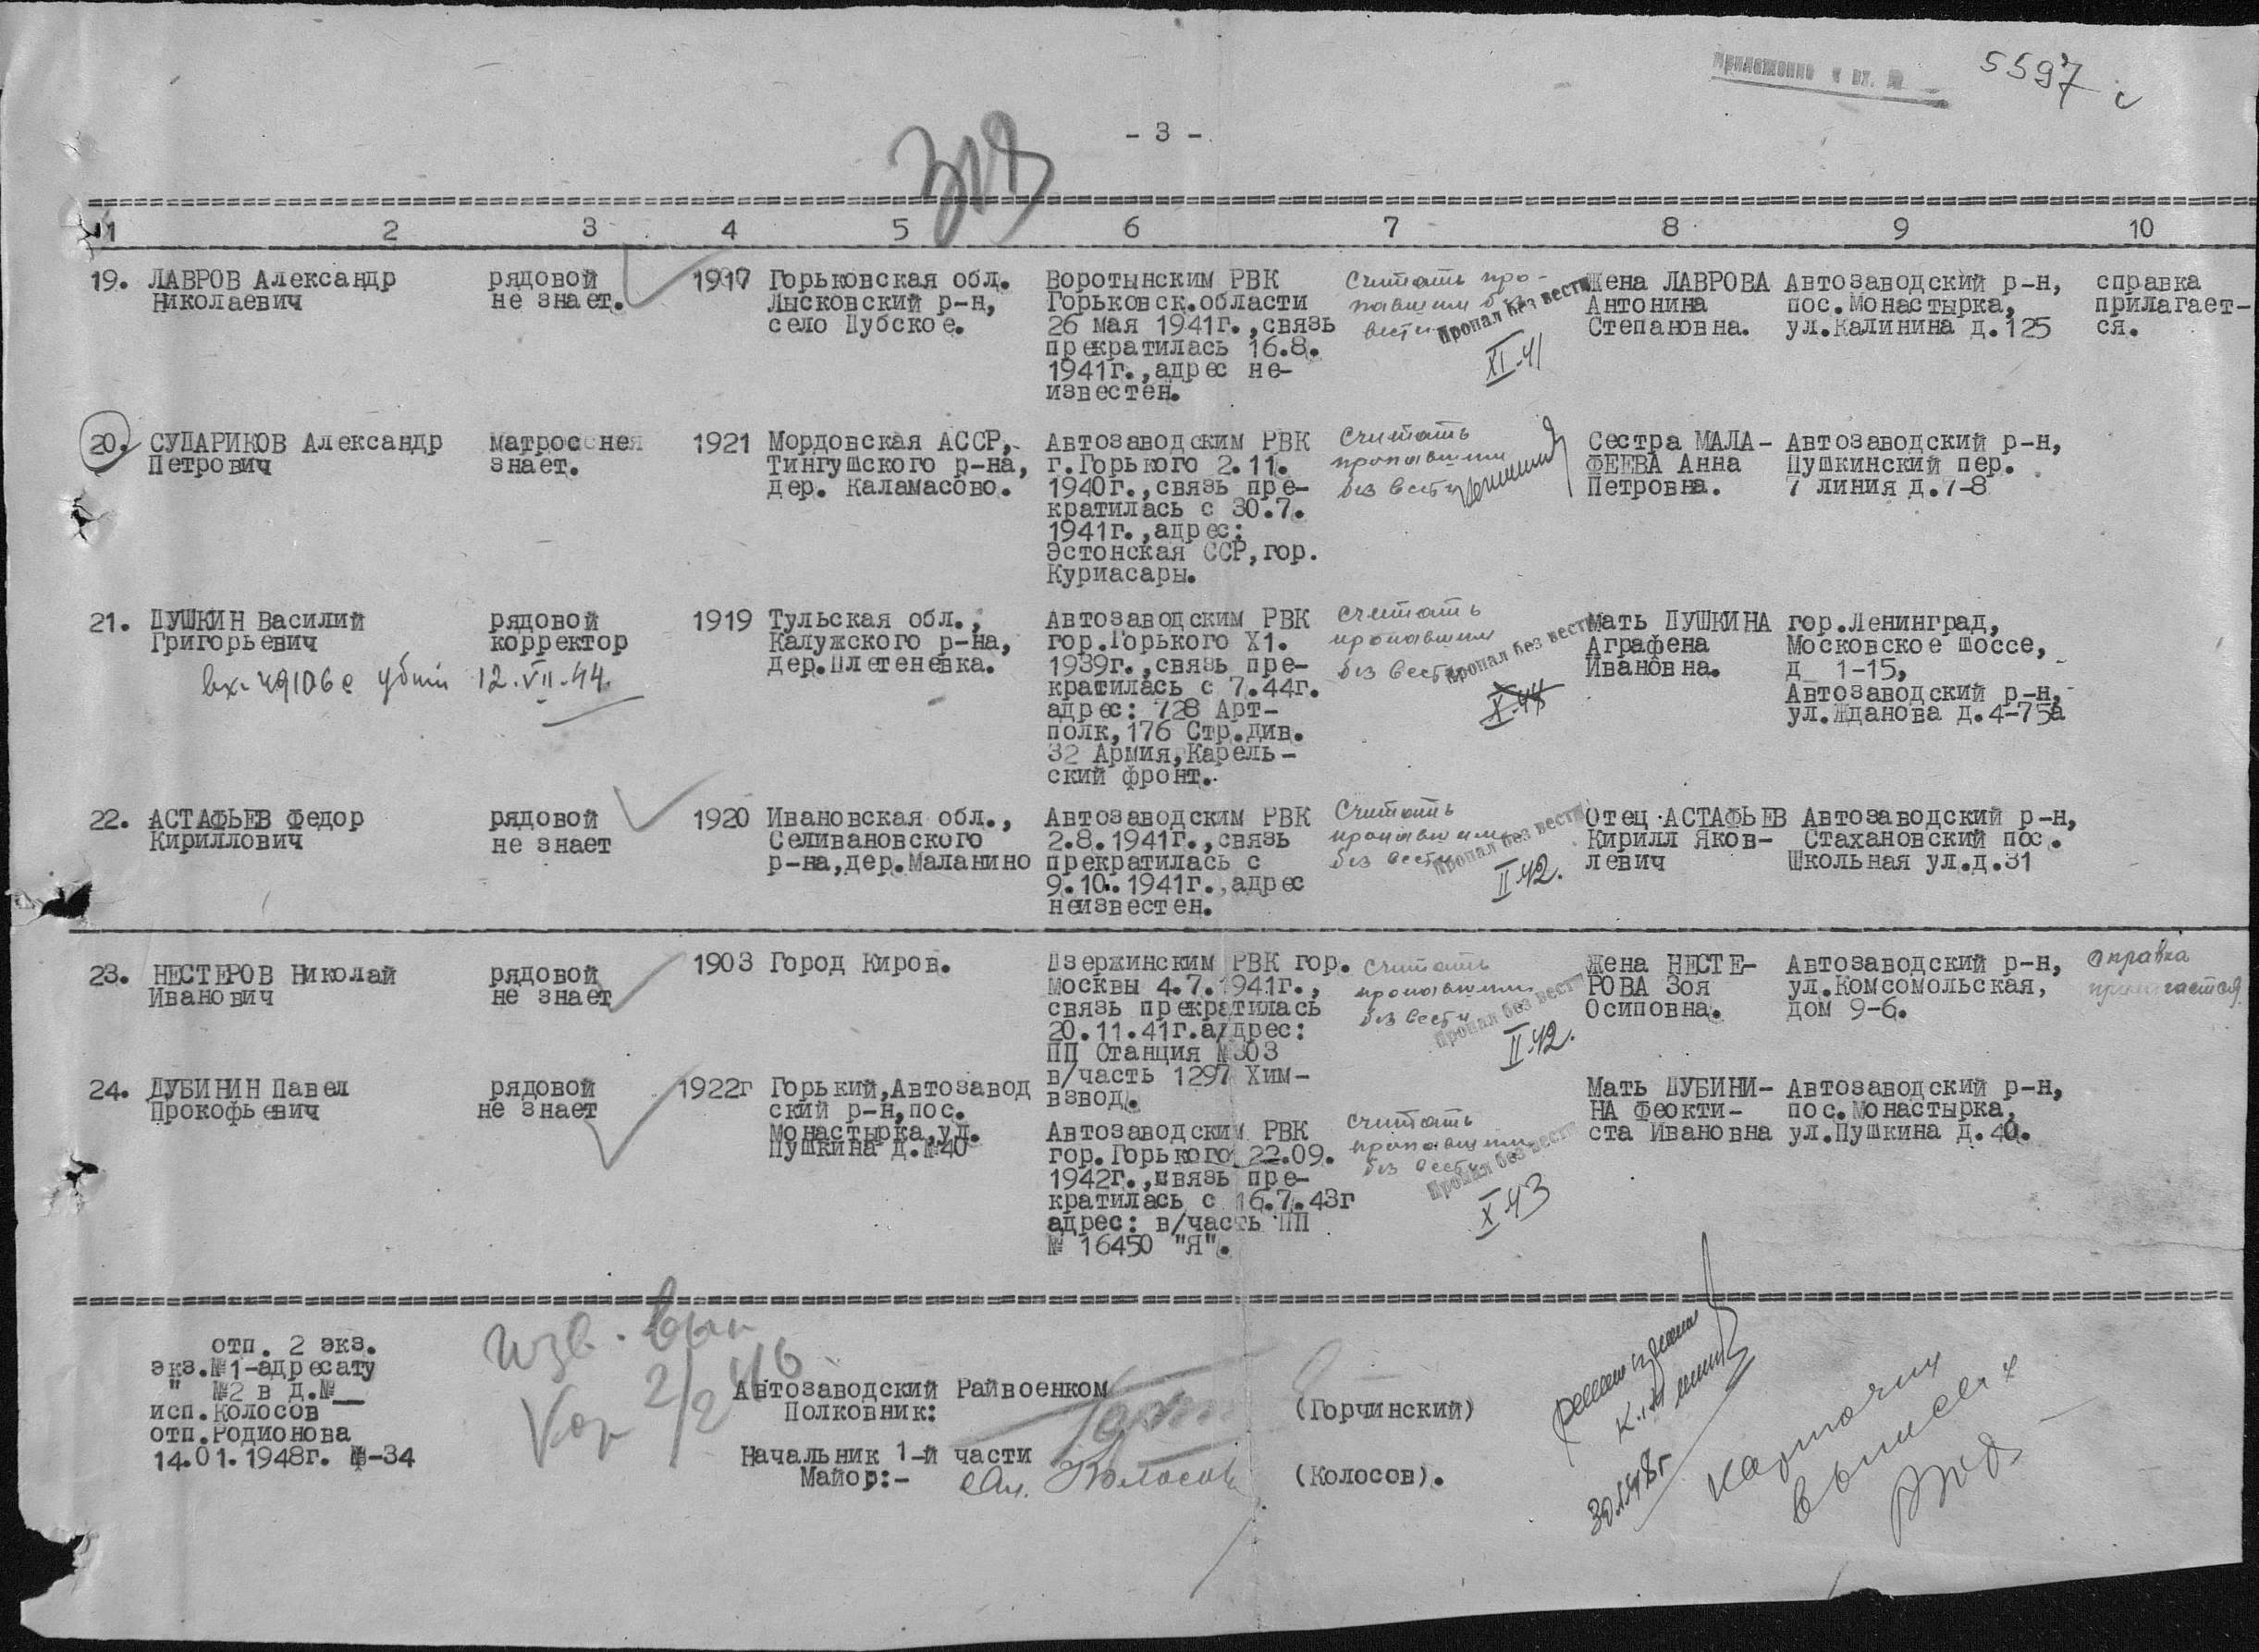 Приложение к вх. №
5597 с
- 3 -
1 2 3 4 5 6 7 8 9 10
19. ЛАВРОВ Александр
Николаевич
рядовой
не знает.
1917
Горьковская обл.
Лысковский р-н,
село Дубское.
Воротынским РВК
Горьковск.области
26 мая 1941г.,связь
прекратилась 16.8.
1941г.,адрес не-
известен.
Считать про-
павшим без
вести
Пропал без вести
XI-41
Жена ЛАВРОВА
Антонина
Степановна.
Автозаводский р-н,
пос.Монастырка,
ул.Калинина д.125
справка
прилагает-
ся.
20. СУДАРИКОВ Александр
Петрович
матрос не
знает.
1921
Мордовская АССР,
Тингушского р-на,
дер. Каламасово.
Автозаводским РВК
г.Горького 2.11.
1940г.,связь пре-
кратилась с 30.7.
1941г.,адрес:
Эстонская ССР,гор.
Куриасары.
Считать
пропавшим
без вести
Сестра МАЛА-
ФЕЕВА Анна
Петровна.
Автозаводский р-н,
Пушкинский пер.
7 линия д.7-8
21. ПУШКИН Василий
Григорьевич
вх. 49106с убит 12.VII.44.
рядовой
корректор
1919
Тульская обл.,
Калужского р-на,
дер.Плетеневка.
Автозаводским РВК
гор.Горького Х1.
1939г.,связь пре-
кратилась с 7.44г.
адрес: 728 Арт-
полк,176 Стр.див.
32 Армия,Карель-
ский фронт.
Считать
пропавшим
без вести
Пропал без вести
X-44
Мать ПУШКИНА
Аграфена
Ивановна.
гор.Ленинград,
Московское шоссе,
д 1-15,
Автозаводский р-н,
ул.Жданова д.4-75а
22. АСТАФЬЕВ Федор
Кириллович
рядовой
не знает
1920
Ивановская обл.,
Селивановского
р-на,дер.Маланино
Автозаводским РВК
2.8.1941г.,связь
прекратилась с
9.10.1941г.,адрес
неизвестен.
Считать
пропавшим
без вести
Пропал без вести
II-42.
Отец АСТАФЬЕВ
Кирилл Яков-
левич
Автозаводский р-н,
Стахановский пос.
Школьная ул.д.31
23. НЕСТЕРОВ Николай
Иванович
рядовой
не знает
1903
Город Киров.
Дзержинским РВК гор.
Москвы 4.7.1941г.,
связь прекратилась
20.11.41г.адрес:
ПП Станция №303
в/часть 1297 Хим-
взвод.
Считать
пропавшим
без вести
Пропал без вести
II-42.
Жена НЕСТЕ-
РОВА Зоя
Осиповна.
Автозаводский р-н,
ул.Комсомольская,
дом 9-6.
справка
прилагается
24. ДУБИНИН Павел
Прокофьевич
рядовой
не знает
1922г
Горький,Автозавод
ский р-н,пос.
Монастырка,ул.
Пушкина д.№40
Автозаводским РВК
гор.Горького 22.09.
1942г.,связь пре-
кратилась с 16.7.43г
адрес: в/часть ПП
№ 16450 "Я".
Считать
пропавшим
без вести
Пропал без вести
X-43
Мать ДУБИНИ-
НА Феокти-
ста Ивановна
Автозаводский р-н,
пос.Монастырка,
ул.Пушкина д.40.
отп. 2 экз.
экз.№1-адресату
" №2 в д.№__
исп.Колосов
отп.Родионова
14.01.1948г. №-34
изв.
Автозаводский Райвоенком
Полковник:
(Горчинский)
Начальник 1-й части
Майор:-
Колосов
(Колосов).